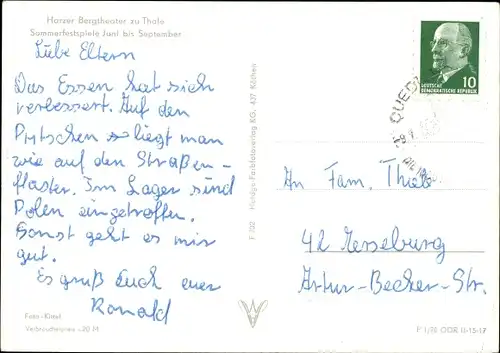 Harzer Bergtheater zu Thale
Sommerfestspiele Juni bis September
Liebe Eltern
Das Essen hat sich
verbessert. Auf den
Pritschen liegt man
wie auf den Straßen-
flaster. Im Lager sind
Polen eingetroffen.
Sonst geht es mir
gut.
Es gruß Euch euer
Ronald
Foto-Kittel
Verbraucherpreis -,20 M
Farbfotoverlag KG, 437 Köthen
QUED
10
DEUTSCHE
DEMOKRATISCHE REPUBLIK
An Fam. Thiele
42 Merseburg
Artur-Becker-Str.
DDR II-15-17